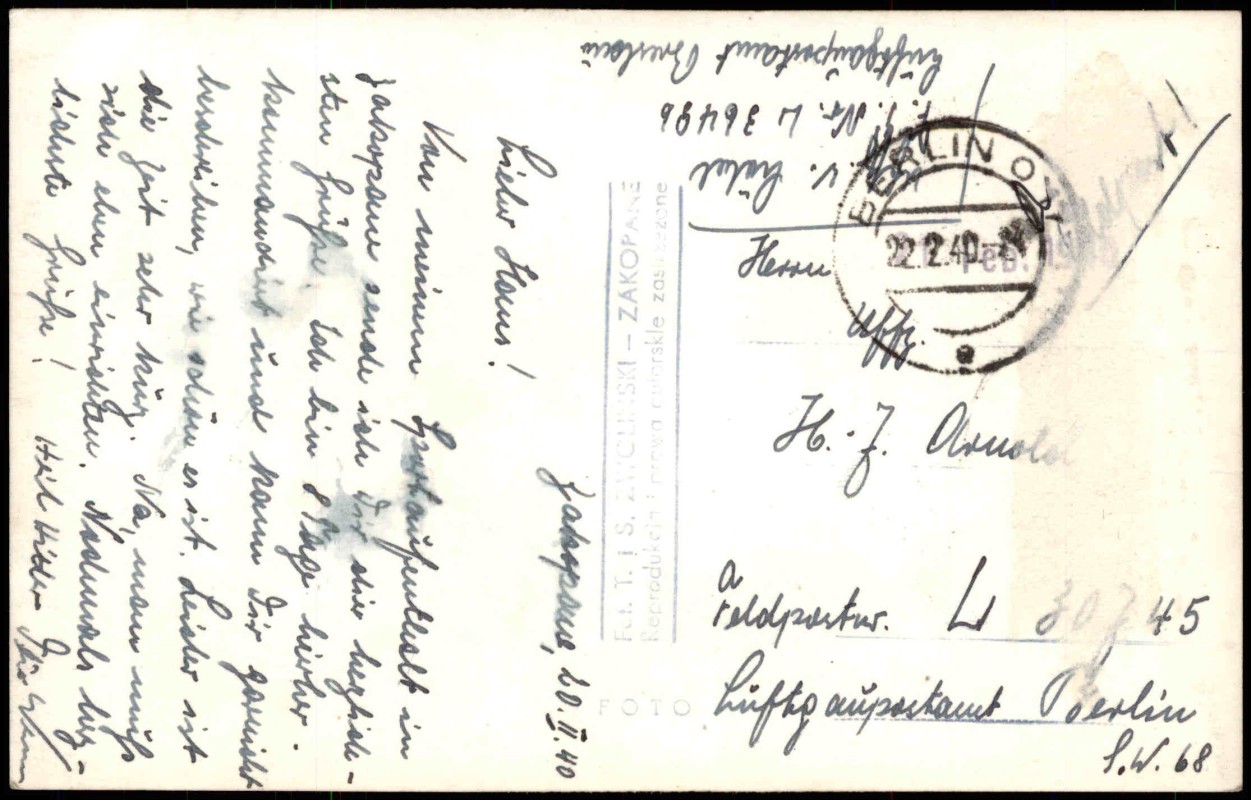 Zakopane, 20.II.40
Lieber Hans!
Von meinem Sportaufenthalt in
Zakopane sende ich Dir die herzlich-
sten Grüße. Ich bin 8 Tage hierher
kommandiert und kann Dir garnicht
beschreiben, wie schön es ist. Leider ist
die Zeit sehr kurz. Na, man muß
sich eben einrichten. Nochmals herz-
lichste Grüße!
Heil Hitler
Fot. T. I S. ZWOLIŃSKI – ZAKOPANE
Reprodukcja i prawa autorskie zastrzeżone
FOTO
v.
F.P. Nr. L 36496
Luftgaupostamt Breslau
Feldpost!
BERLIN OST
22.2.40
Feb. 1940
e
Herrn
Uffz.
H. J. Arnold
Feldpostnr. L 30745
Luftgaupostamt Berlin
S.W. 68